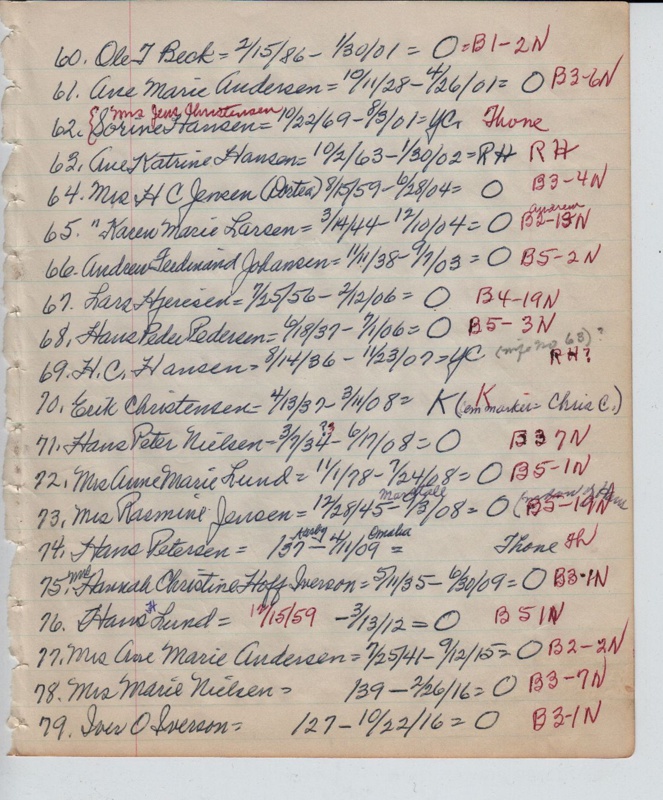 60. Ole T Beck = 2/15/86 - 1/30/01 = O = B1-2N
61. Ane Marie Andersen = 10/11/28 - 4/26/01 = O B3-6N
{Mrs Jens Christensen
62. Sorine Hansen = 10/22/69 - 8/3/01 = YC. Thone
63, Ane Katrine Hansen = 10/2/63 - 1/30/02 = RH RH
64. Mrs H C Jensen (Dortea) 8/15/59 - 6/28/04 = O B3-4N
65. " Karen Marie Larsen = 3/14/44 - 12/10/04 = O B2-13N
66. Andrew Ferdinand Johansen = 11/11/38 - 9/7/03 = O B5-2N
67. Lars Hjeresen = 7/25/56 - 2/12/06 = O B4-19N
68, Hans Peder Pedersen = 6/18/37 - 7/1/06 = O B5-3N
69. H.C. Hansen = 8/14/36 - 11/23/07 = YC (info no 63) ? RH?
70. Erik Christensen = 4/13/37 - 3/11/08 = K K (on marker = Chris C.)
71. Hans Peter Nielsen = 3/7/34 ?3 - 6/17/08 = O B3 7N
72. Mrs Anne Marie Lund = 11/1/78 - 7/24/08 = O B5-1N
73, Mrs Rasmine Jensen = 12/28/45 - 1/3/08 = O B5-19N
74. Hans Petersen = 137 - 4/11/09 = Omaha Thone
75. Mrs Hannah Christine Hoff Iverson = 5/11/35 - 6/30/09 = O B3-1N
76. Hans H Lund = 12/15/59 - 3/13/12 = O B5 1N
77. Mrs Ane Marie Andersen = 7/25/41 - 9/12/15 = O B2-2N
78. Mrs Marie Nielsen = 139 - 2/26/16 = O B3-7N
79. Iver O Iverson = 127 - 10/22/16 = O B3-1N